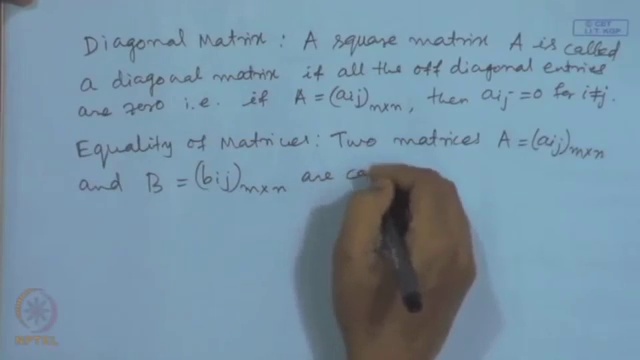 © CET
I.I.T. KGP
Diagonal Matrix : A square matrix A is called
a diagonal matrix if all the off diagonal entries
are zero i.e. if A = (aij)n×n, then aij = 0 for i≠j.
Equality of Matrices : Two matrices A = (aij)m×n
and B = (bij)m×n are ca
NPTEL